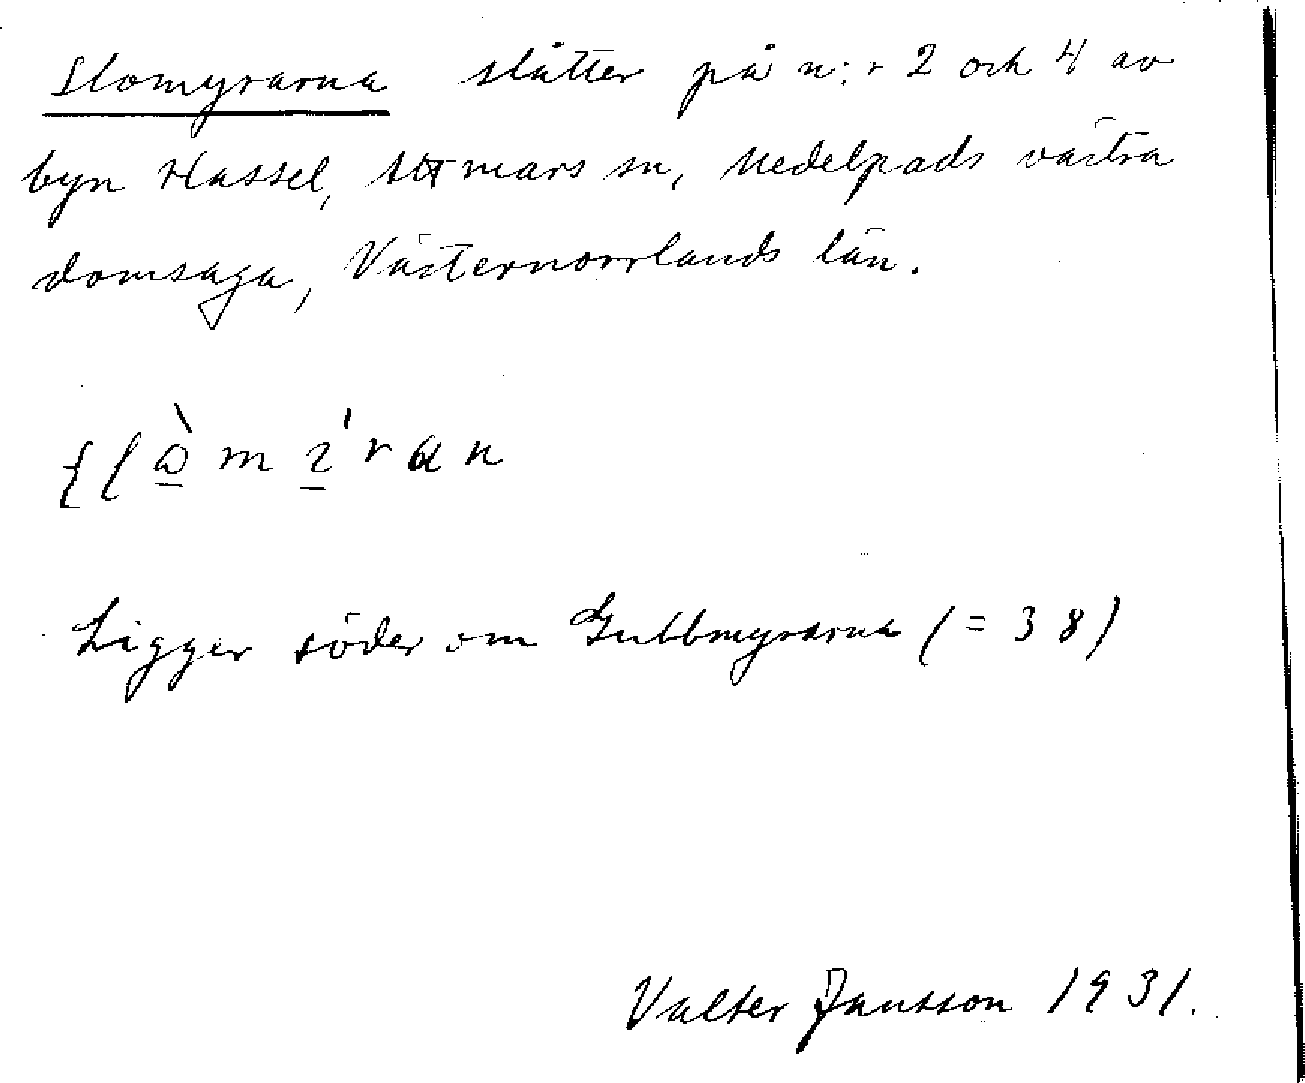 Slomyrarna slåtter på n:r 2 och 4 av
byn Hassel, Attmars sn, Medelpads västra
domsaga, Västernorrlands län.
Ligger söder om Gubbmyrarna (= 38)
Valter Jansson 1931.